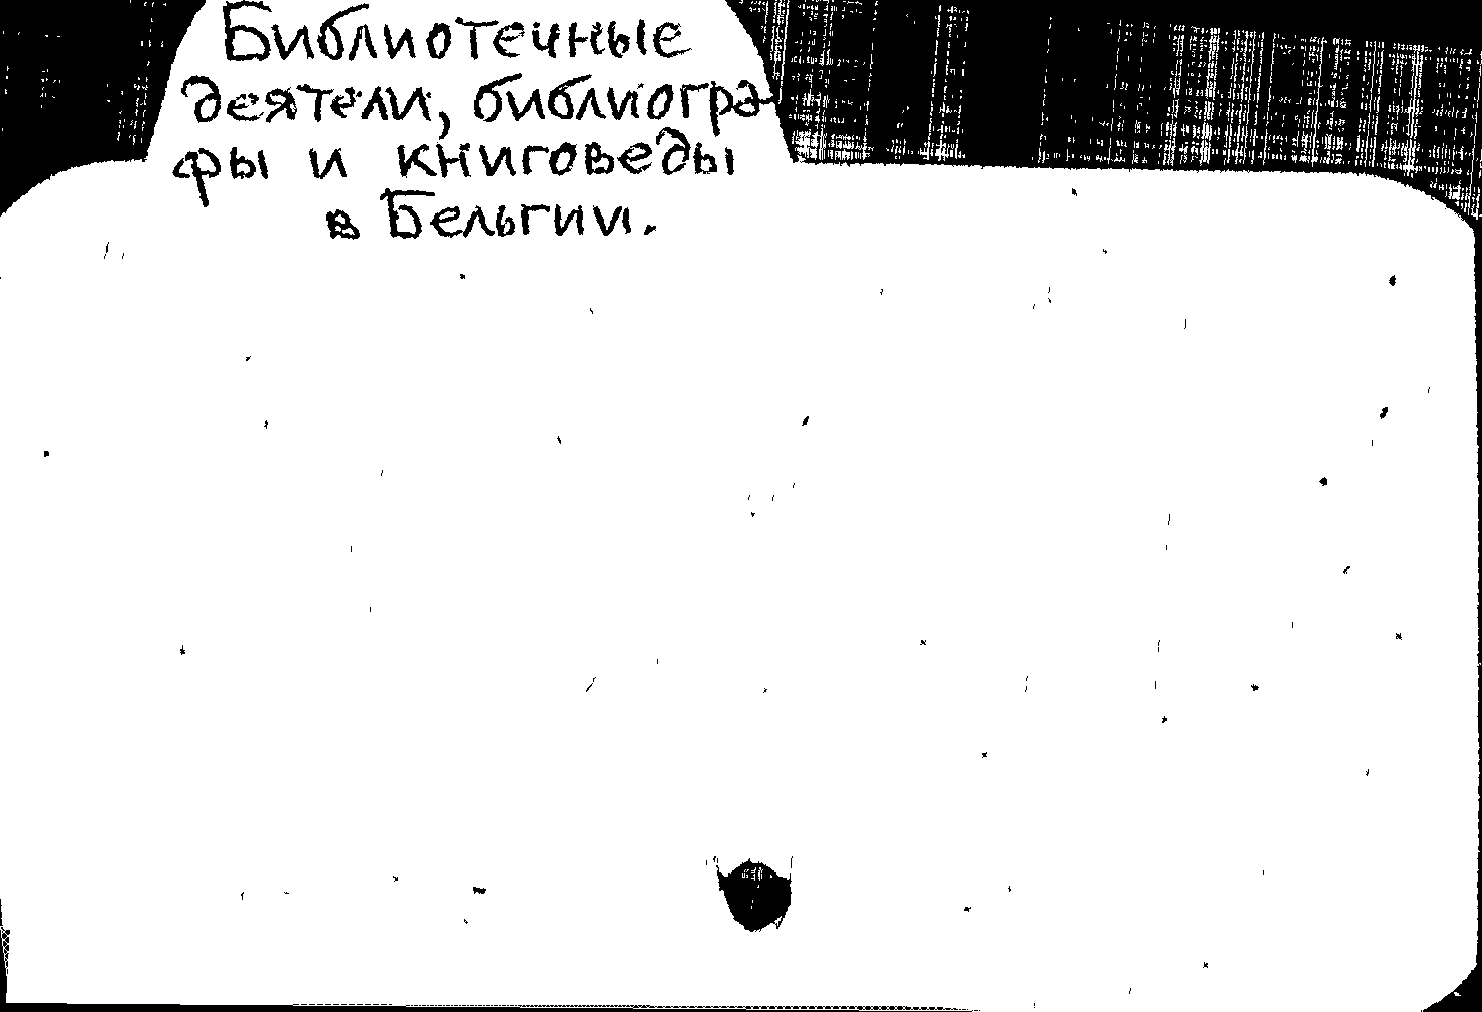 Библиотечные
деятели, библиогра-
фы и книговеды
в Бельгии.